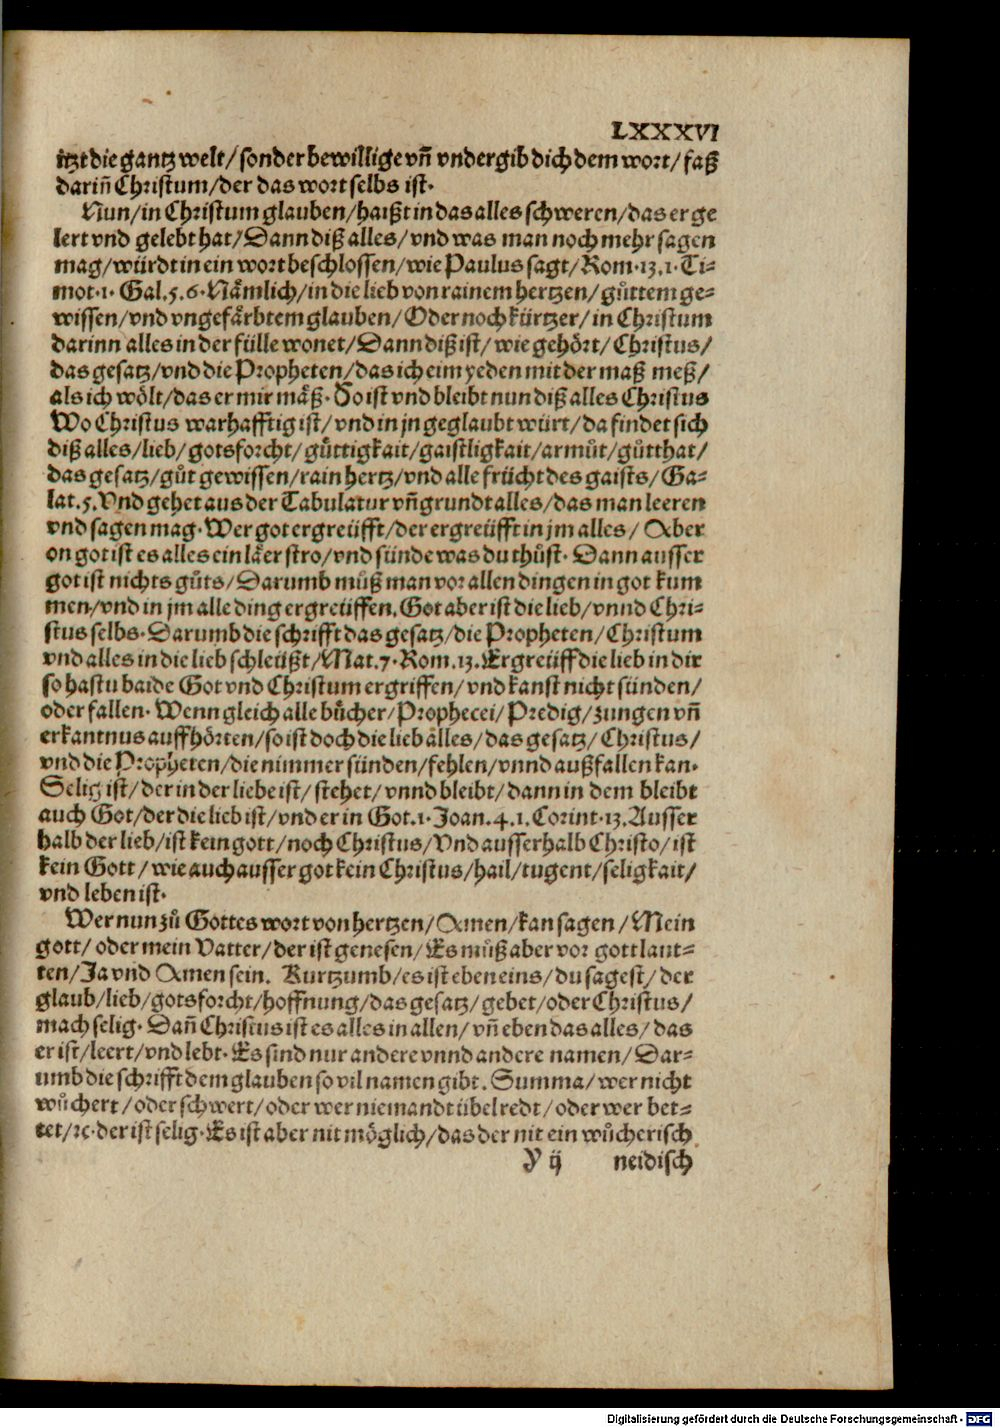 LXXXVI
itzt die gantz welt/ sonder bewillige vñ vndergib dich dem wort/ faß
dariñ Christum/ der das wort selbs ist.
Nun/ in Christum glauben/ haißt in das alles schweren/ das er ge
lert vnd gelebt hat/ Dann diß alles/ vnd was man noch mehr sagen
mag/ würdt in ein wort beschlossen/ wie Paulus sagt/ Rom. 13. 1. Ti-
mot. 1. Gal. 5. 6. Nämlich/ in die lieb von rainem hertzen/ gůttem ge-
wissen/ vnd vngefärbtem glauben/ Oder noch kürtzer/ in Christum
darinn alles in der fülle wonet/ Dann diß ist/ wie gehört/ Christus/
das gesatz/ vnd die Propheten/ das ich eim yeden mit der maß meß/
als ich wölt/ das er mir mäß. So ist vnd bleibt nun diß alles Christus
Wo Christus warhafftig ist/ vnd in jn geglaubt würt/ da findet sich
diß alles/ lieb/ gotsforcht/ gůttigkait/ gaistligkait/ armůt/ gůtthat/
das gesatz/ gůt gewissen/ rain hertz/ vnd alle frücht des gaists/ Ga-
lat. 5. Vnd gehet aus der Tabulatur vñ grundt alles/ das man leeren
vnd sagen mag. Wer got ergreüfft/ der ergreüfft in jm alles/ Aber
on got ist es alles ein läer stro/ vnd sünde was du thůst. Dann ausser
got ist nichts gůts/ Darumb můß man vor allen dingen in got kum
men/ vnd in jm alle ding ergreüffen. Got aber ist die lieb/ vnnd Chri-
stus selbs. Darumb die schrifft das gesatz/ die Propheten/ Christum
vnd alles in die lieb schleüßt/ Mat. 7. Rom. 13. Ergreüff die lieb in dir
so hastu baide Got vnd Christum ergriffen/ vnd kanst nicht sünden/
oder fallen. Wenn gleich alle bůcher/ Prophecei/ Predig/ zungen vñ
erkantnus auffhörten/ so ist doch die lieb alles/ das gesatz/ Christus/
vnd die Propheten/ die nimmer sünden/ fehlen/ vnnd außfallen kan.
Selig ist/ der in der liebe ist/ stehet/ vnnd bleibt/ dann in dem bleibt
auch Got/ der die lieb ist/ vnd er in Got. 1. Joan. 4. 1. Corint. 13. Ausser
halb der lieb/ ist kein gott/ noch Christus/ Vnd ausserhalb Christo/ ist
kein Gott/ wie auch ausser got kein Christus/ hail/ tugent/ seligkait/
vnd leben ist.
Wer nun zů Gottes wort von hertzen/ Amen/ kan sagen/ Mein
gott/ oder mein Vatter/ der ist genesen/ Es můß aber vor gott laut-
ten/ Ja vnd Amen sein. Kurtzumb/ es ist eben eins/ du sagest/ der
glaub/ lieb/ gotsforcht/ hoffnung/ das gesatz/ gebet/ oder Christus/
mach selig. Dañ Christus ist es alles in allen/ vñ eben das alles/ das
er ist/ leert/ vnd lebt. Es sind nur andere vnnd andere namen/ Dar-
umb die schrifft dem glauben so vil namen gibt. Summa/ wer nicht
wůchert/ oder schwert/ oder wer niemandt übel redt/ oder wer bet-
tet/ ꝛc. der ist selig. Es ist aber nit möglich/ das der nit ein wůcherisch
Y ij neidisch
Digitalisierung gefördert durch die Deutsche Forschungsgemeinschaft - DFG